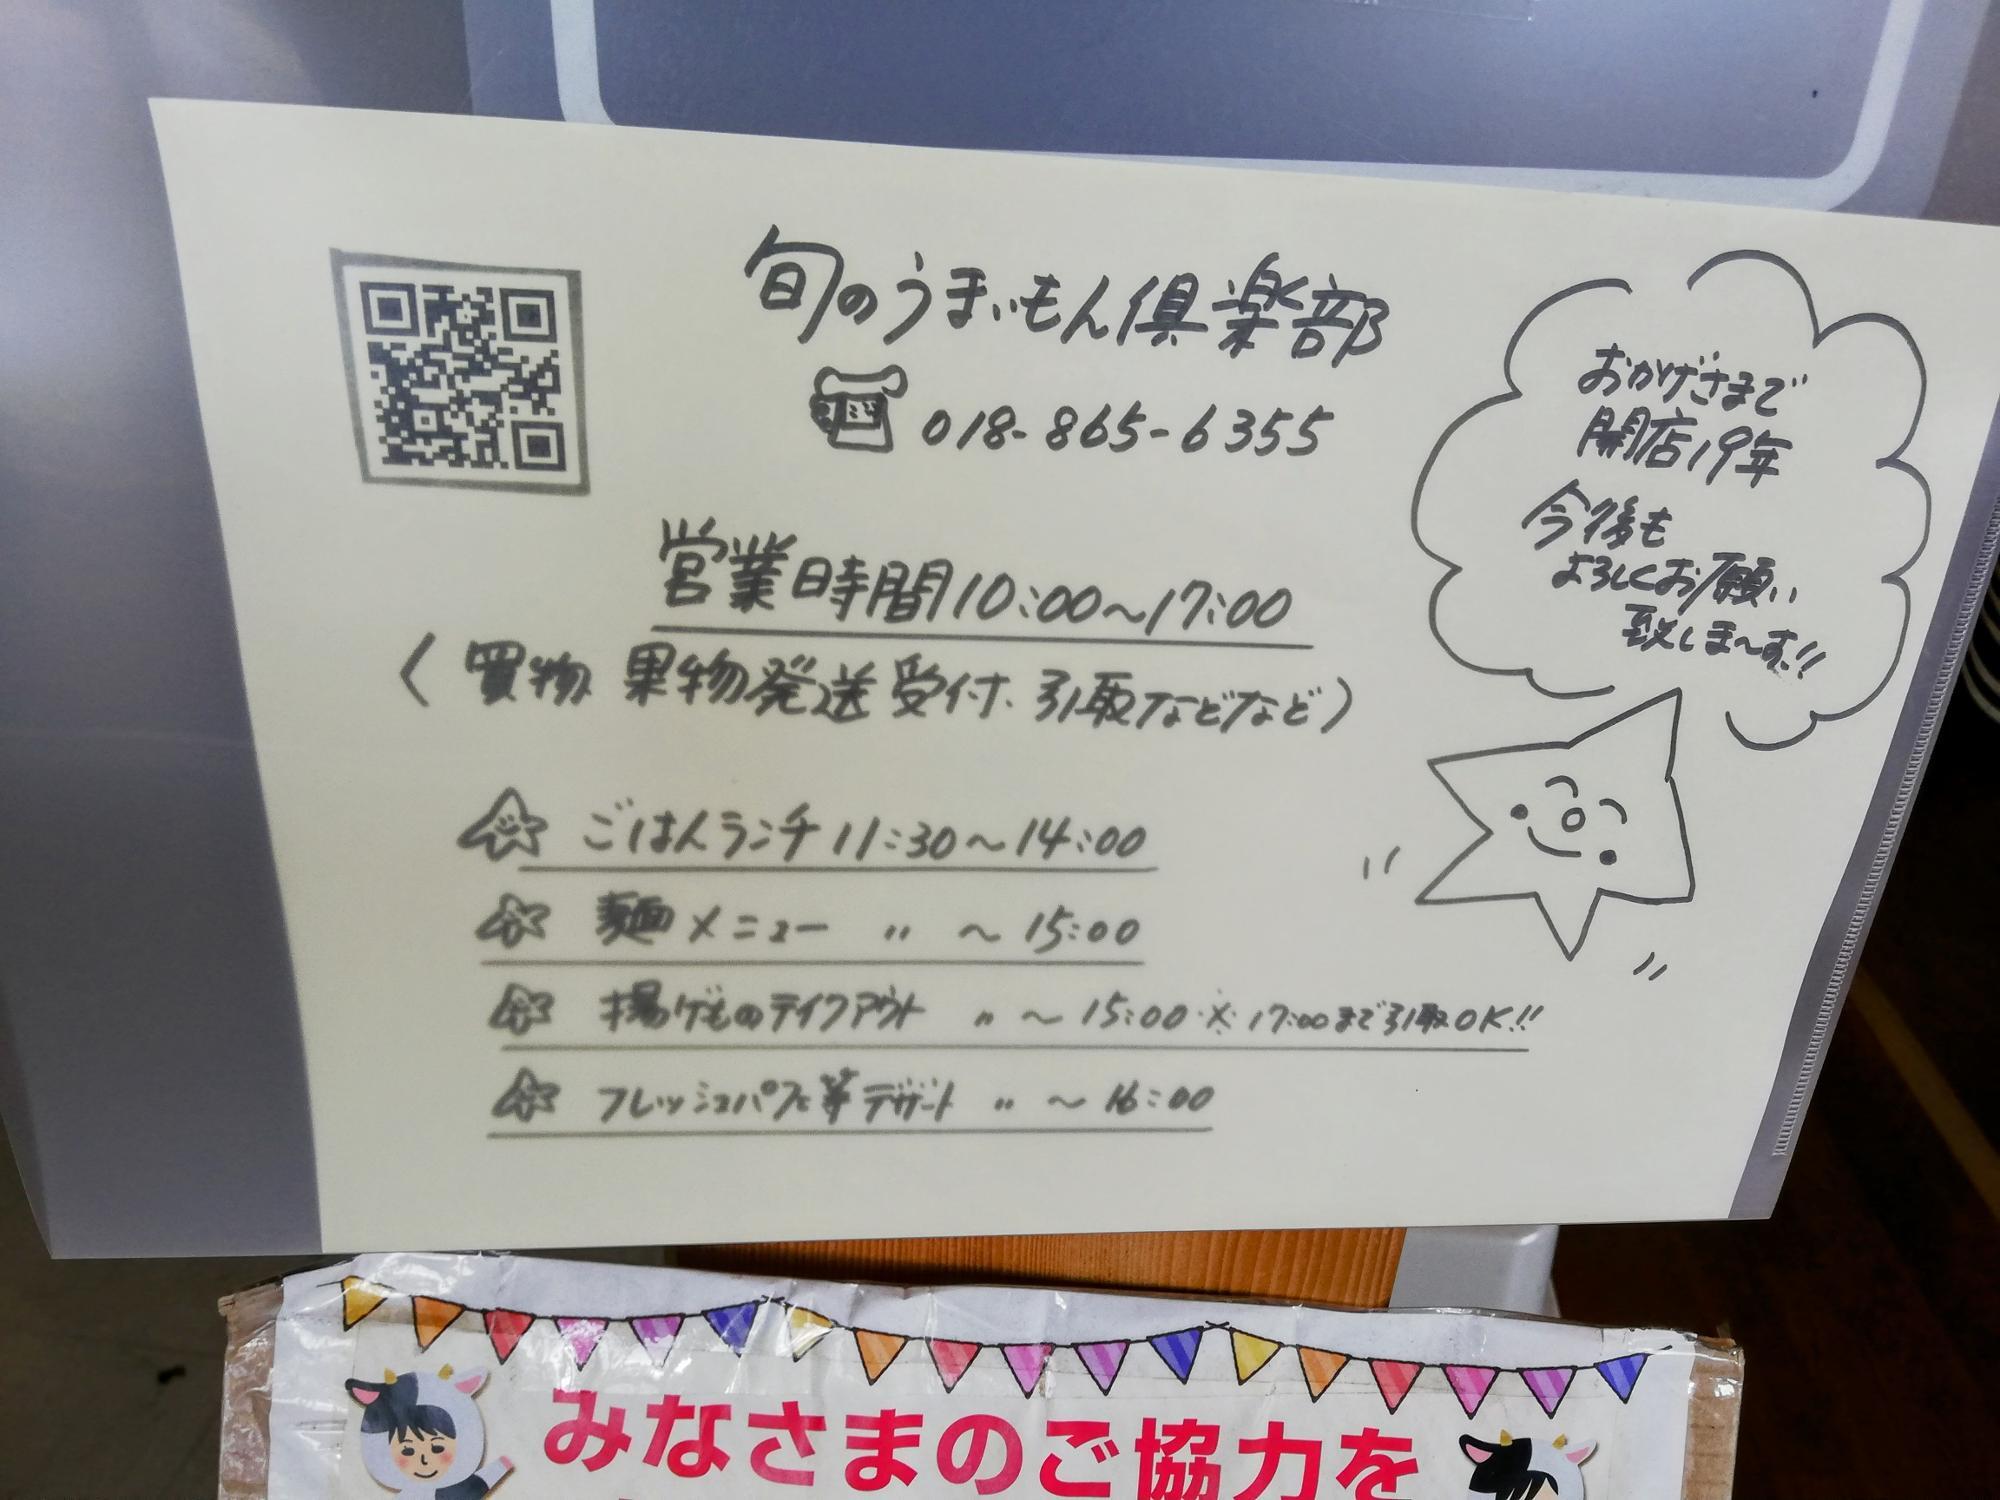 旬のうまいもん倶楽部
018-865-6355
営業時間10:00~17:00
(買物 果物発送受付、引取などなど)
ごはんランチ 11:30~14:00
麺メニュー 〃 ~15:00
揚げものテイクアウト 〃 ~15:00 ※17:00まで引取OK!!
フレッシュパフェ等デザート 〃 ~16:00
おかげさまで
開店19年
今後も
よろしくお願い
致しま~す!!
みなさまのご協力を